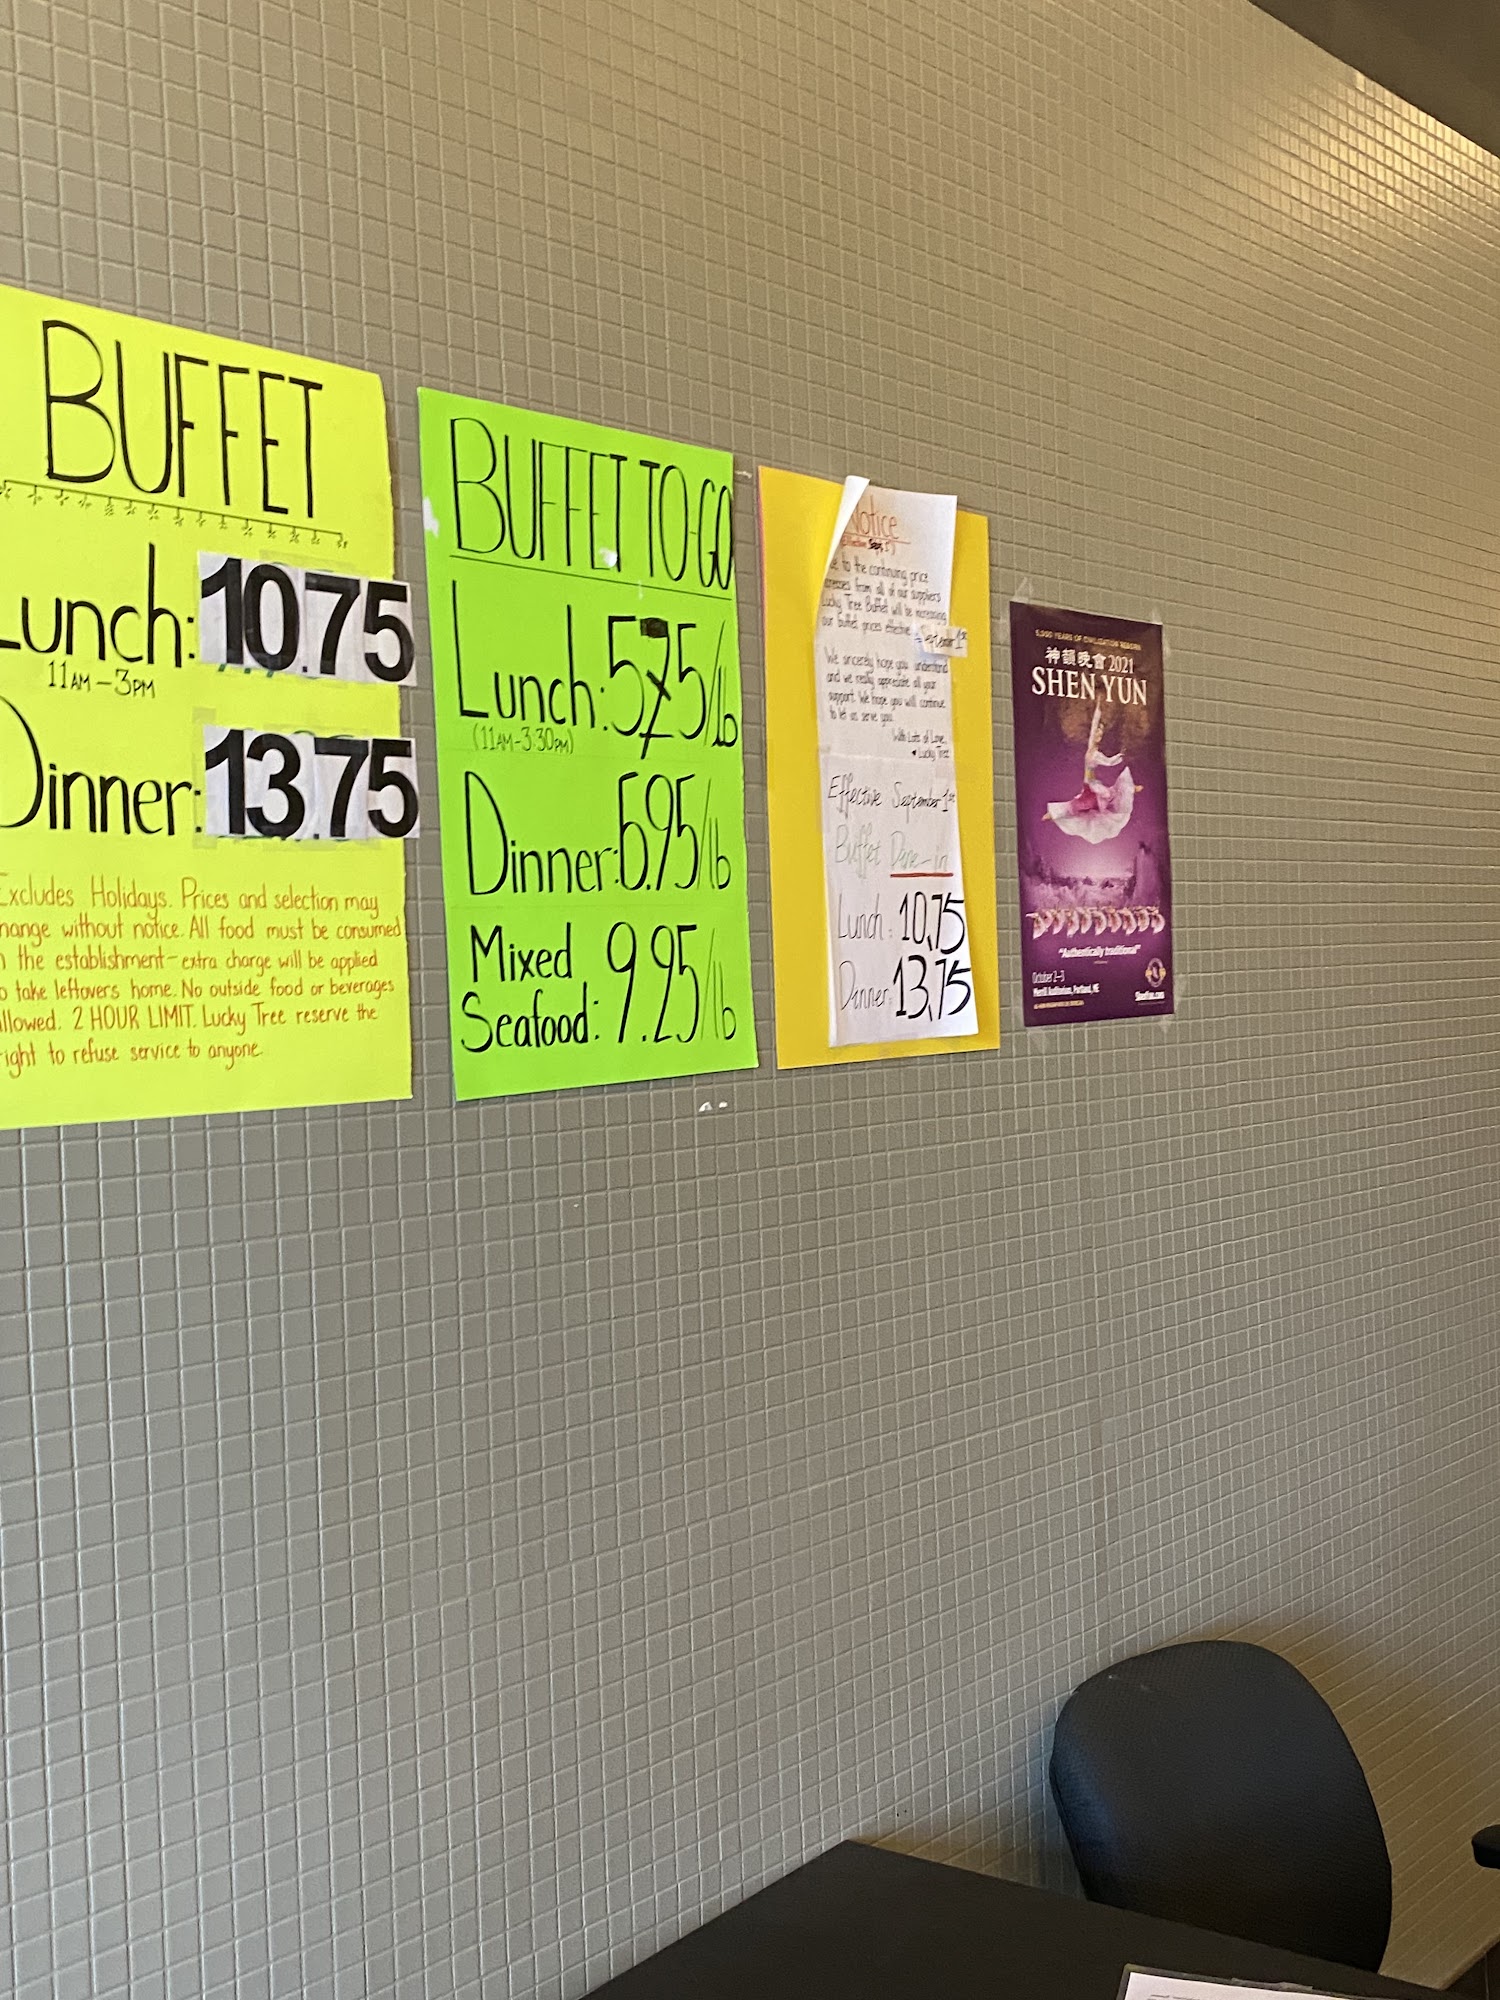 BUFFET
Lunch: 10.75
11AM-3PM
Dinner: 13.75
Excludes Holidays. Prices and selection may
change without notice. All food must be consumed
the establishment-extra charge will be applied
take leftovers home. No outside food or beverages
allowed. 2 HOUR LIMIT. Lucky Tree reserve the
right to refuse service to anyone.
BUFFET TO-GO
Lunch: 5.75/lb
(11AM-3:30PM)
Dinner: 6.95/lb
Mixed
Seafood: 9.25/lb
Notice
(Effective Sept 1st)
to the continuing price
from all of our suppliers
Lucky Tree Buffet will be increasing
our buffet prices effective September 1st
We sincerely hope you understand
and we really appreciate all your
support. We hope you will continue
to let us serve you.
With Lots of Love,
Lucky Tree
Effective September 1st
Buffet Dine-in
Lunch: 10.75
Dinner: 13.75
5,000 YEARS OF CIVILIZATION REBORN
神韻晚會 2021
SHEN YUN
"Authentically traditional"
October 2-3
Merrill Auditorium, Portland, ME